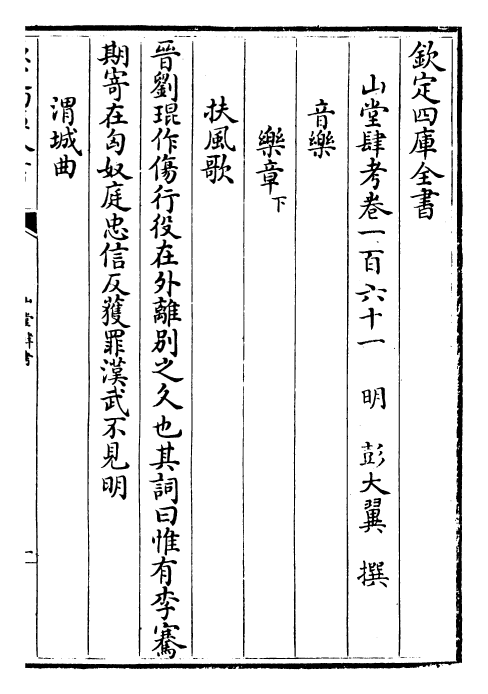 欽定四庫全書
山堂肆考卷一百六十一 明 彭大翼 撰
音樂
樂章下
扶風歌
晉劉琨作傷行役在外離別之久也其詞曰惟有李騫
期寄在匈奴庭忠信反獲罪漢武不見明
渭城曲
山堂肆考